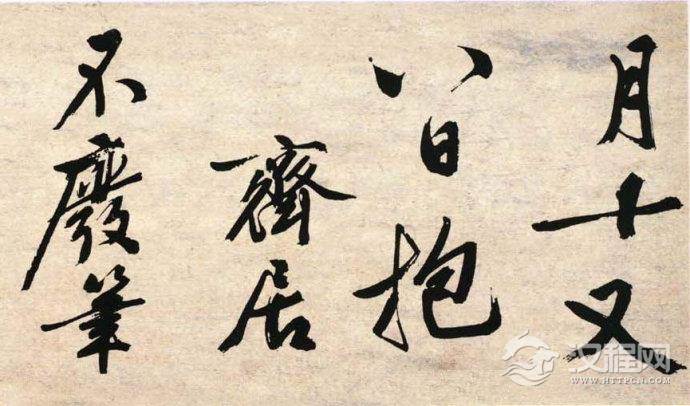 月十又
八日抱
齋居
不廢筆
汉程网
WWW.HTTPCN.COM